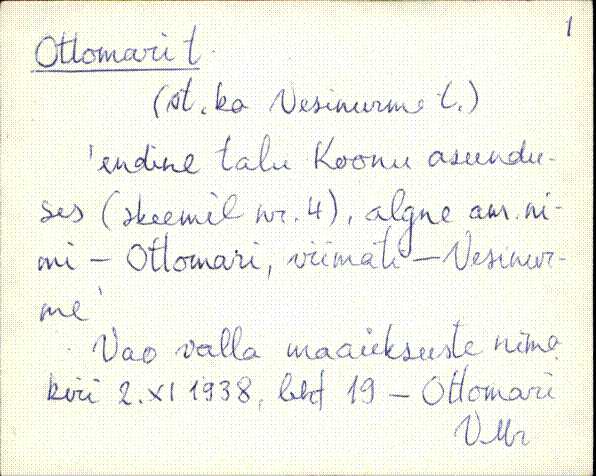 1
Ottomari t.
(vt. ka Vesinurme t.)
'endine talu Koonu asundu-
ses (skeemil nr. 4), algne am. ni-
mi – Ottomari, viimati – Vesinur-
me'
Vao valla maaüksuste nime
kiri 2. XI 1938, lk 19 – Ottomari